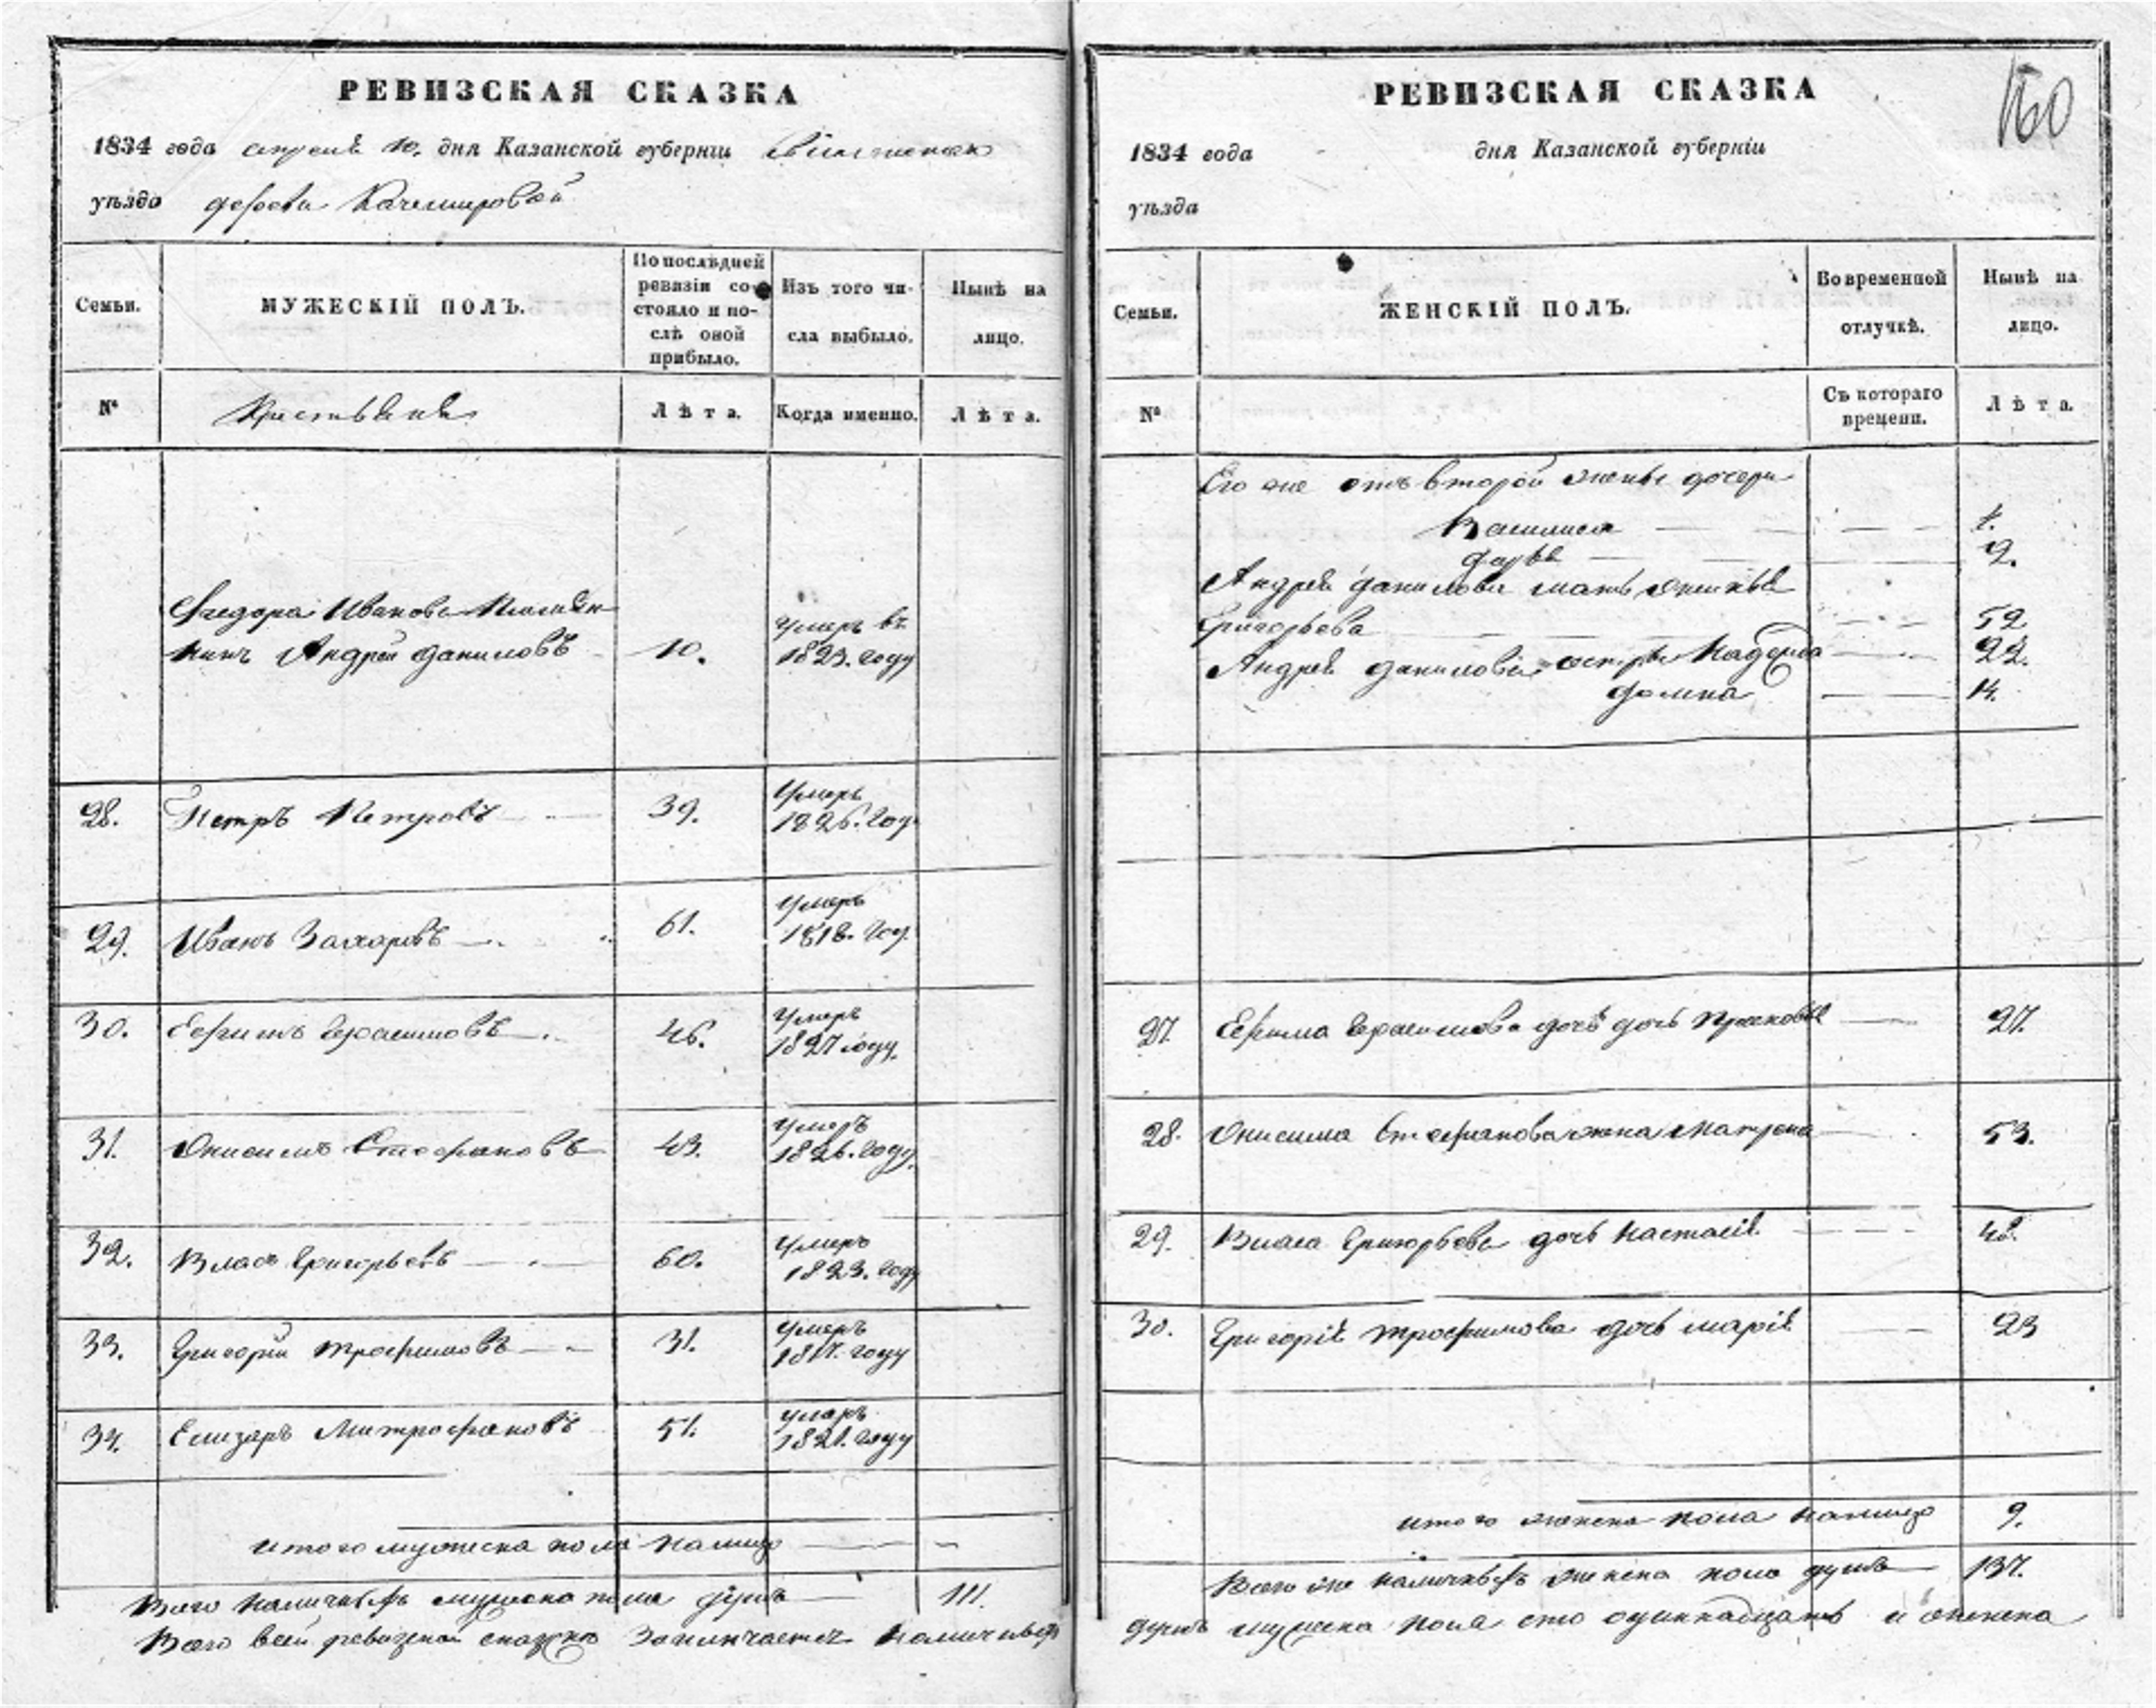 РЕВИЗСКАЯ СКАЗКА
1834 года апреля 10. дня Казанской губерніи
уѣзда
Семьи.
МУЖЕСКІЙ ПОЛЪ.
По послѣдней
ревизіи со-
стояло и по-
слѣ оной
прибыло.
Изъ того чи-
сла выбыло.
Нынѣ на
лицо.
№
Крестьяне
Лѣта.
Когда именно.
Лѣта.
Федора Иванова племян
никъ Андрей Даниловъ 10. умеръ въ
1823. году
28. Петръ Петровъ 39. умеръ
1826. году
29. Иванъ Захаровъ 61. умеръ
1818. год.
30. Ефимъ Герасимовъ 46. умеръ
1827 году.
31. Онисимъ Стефановъ 43. умеръ
1826. году.
32. Власъ Григорьевъ 60. умеръ
1823. году
33. Григорий Трофимовъ 31. умеръ
1817. году
34. Елизаръ Митрофановъ 51. умеръ
1821. году
итого мужеска пола налицо
Всего наличныхъ мужеска пола душъ 111.
Всего всей ревизской сказке заключается наличныхъ
РЕВИЗСКАЯ СКАЗКА
160
1834 года дня Казанской губерніи
уѣзда
Семьи.
ЖЕНСКІЙ ПОЛЪ.
Во временной
отлучкѣ.
Нынѣ на
лицо.
№
Съ котораго
времени.
Лѣта.
Его же отъ второй жены дочери
Василиса
Дарья 9.
Андрея Данилова мать
Григорьева 52
Андрея Данилова сестры Надежда 22.
Домна 14.
27. Ефима Герасимова дочь Прасковья 27.
28. Онисима Стефанова жена Матрена 53.
29. Власа Григорьева дочь Настасія
30. Григорія Трофимова дочь Марія 23
итого женска пола налицо 9.
Всего же наличныхъ женска пола душъ 137.
душъ мужеска пола сто одиннадцать и женска